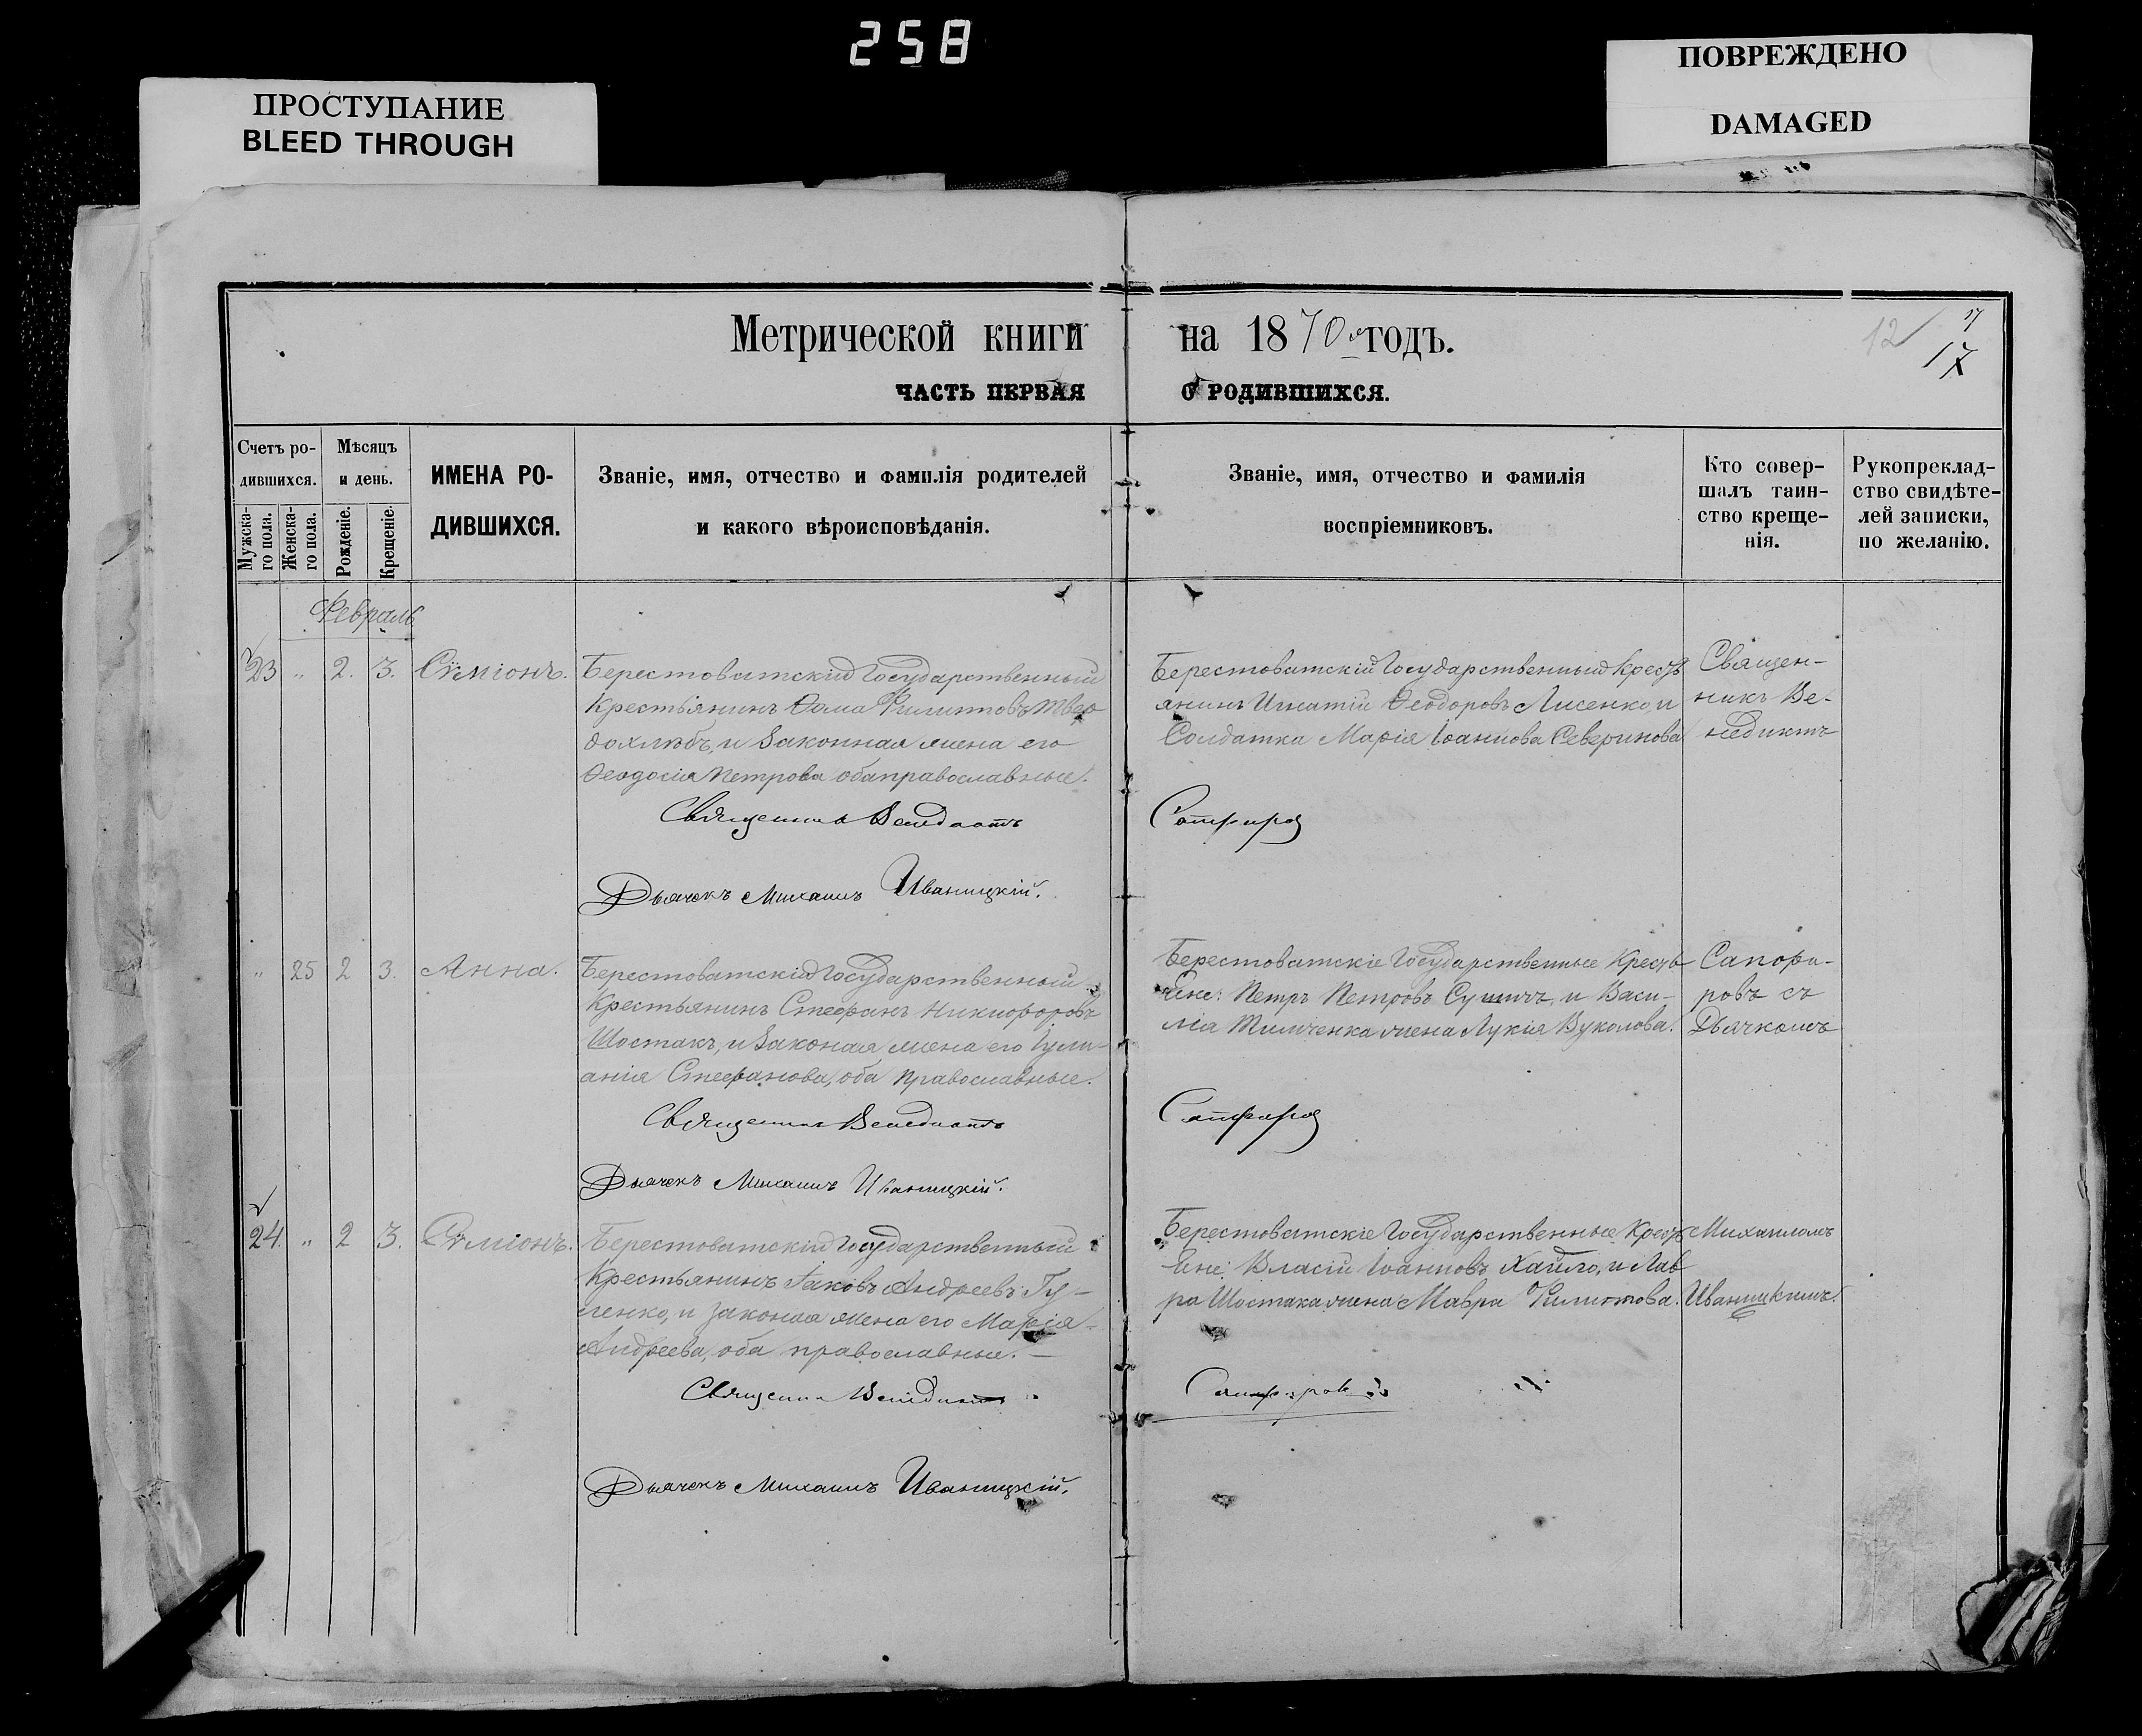 258
ПРОСТУПАНИЕ
BLEED THROUGH
ПОВРЕЖДЕНО
DAMAGED
Метрической книги на 1870 годъ.
12
17
17
ЧАСТЬ ПЕРВАЯ О РОДИВШИХСЯ.
Счетъ ро-
дившихся.
Мужска-
го пола.
Женска-
го пола.
Мѣсяцъ
и день.
Рожденіе.
Крещеніе.
ИМЕНА РО-
ДИВШИХСЯ.
Званіе, имя, отчество и фамилія родителей
и какого вѣроисповѣданія.
Званіе, имя, отчество и фамилія
воспріемниковъ.
Кто совер-
шалъ таин-
ство креще-
нія.
Рукопреклад-
ство свидѣте-
лей записки,
по желанію.
Февраль
23 " 2. 3. Сѵміонъ.
Берестоватскій Государственный
Крестьянинъ Ѳома Филипповъ Твер
дохлѣбъ, и Законная жена его
Ѳеодосія Петрова оба православные.
Священникъ Венедиктъ
Дьячекъ Михаилъ Иваницкій.
Берестоватскій Государственный Крестъ
янинъ Игнатій Ѳеодоровъ Лисенко, и
Солдатка Марія Іоаннова Северинова
Сапфировъ
Священ-
никъ Ве-
недиктъ
" 25 2 3. Анна.
Берестоватскій Государственный
Крестьянинъ Стефанъ Никифоровъ
Шостакъ, и Законая жена его Іули-
анія Стефанова, оба православные.
Священникъ Венедиктъ
Дьячекъ Михаилъ Иваницкій.
Берестоватскіе Государственные Кресть
яне: Петръ Петровъ Сушичъ, и Васи-
лія Тимченка жена Лукія Вуколова.
Сапфировъ
Сапфи-
ровъ съ
Дьячкомъ
24. " 2 3. Сѵміонъ.
Берестоватскій Государственный
Крестьянинъ Іаковъ Андреевъ Гу-
ленко, и Законая жена его Марія
Андреева, оба православные. —
Священникъ Венедиктъ
Дьячекъ Михаилъ Иваницкій.
Берестоватскіе Государственные Кресть
яне: Власій Іоанновъ Хайло, и Лав
ра Шостака жена Мавра Филиппова.
Сапфировъ
Михаиломъ
Иваницкимъ.